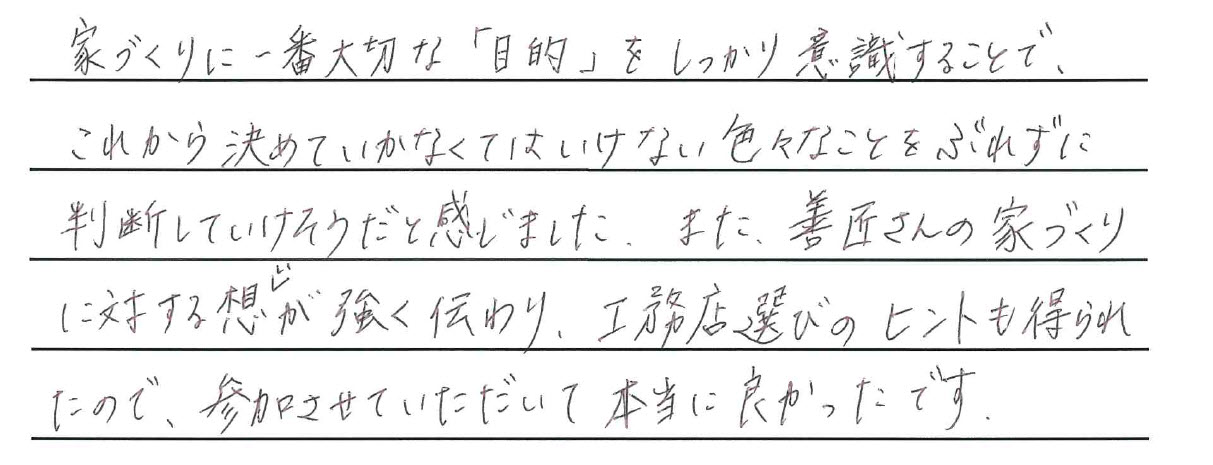 家づくりに一番大切な「目的」をしっかり意識することで、
これから決めていかなくてはいけない色々なことをぶれずに
判断していけそうだと感じました。また、善匠さんの家づくり
に対する想いが強く伝わり、工務店選びのヒントも得られ
たので、参加させていただいて本当に良かったです。